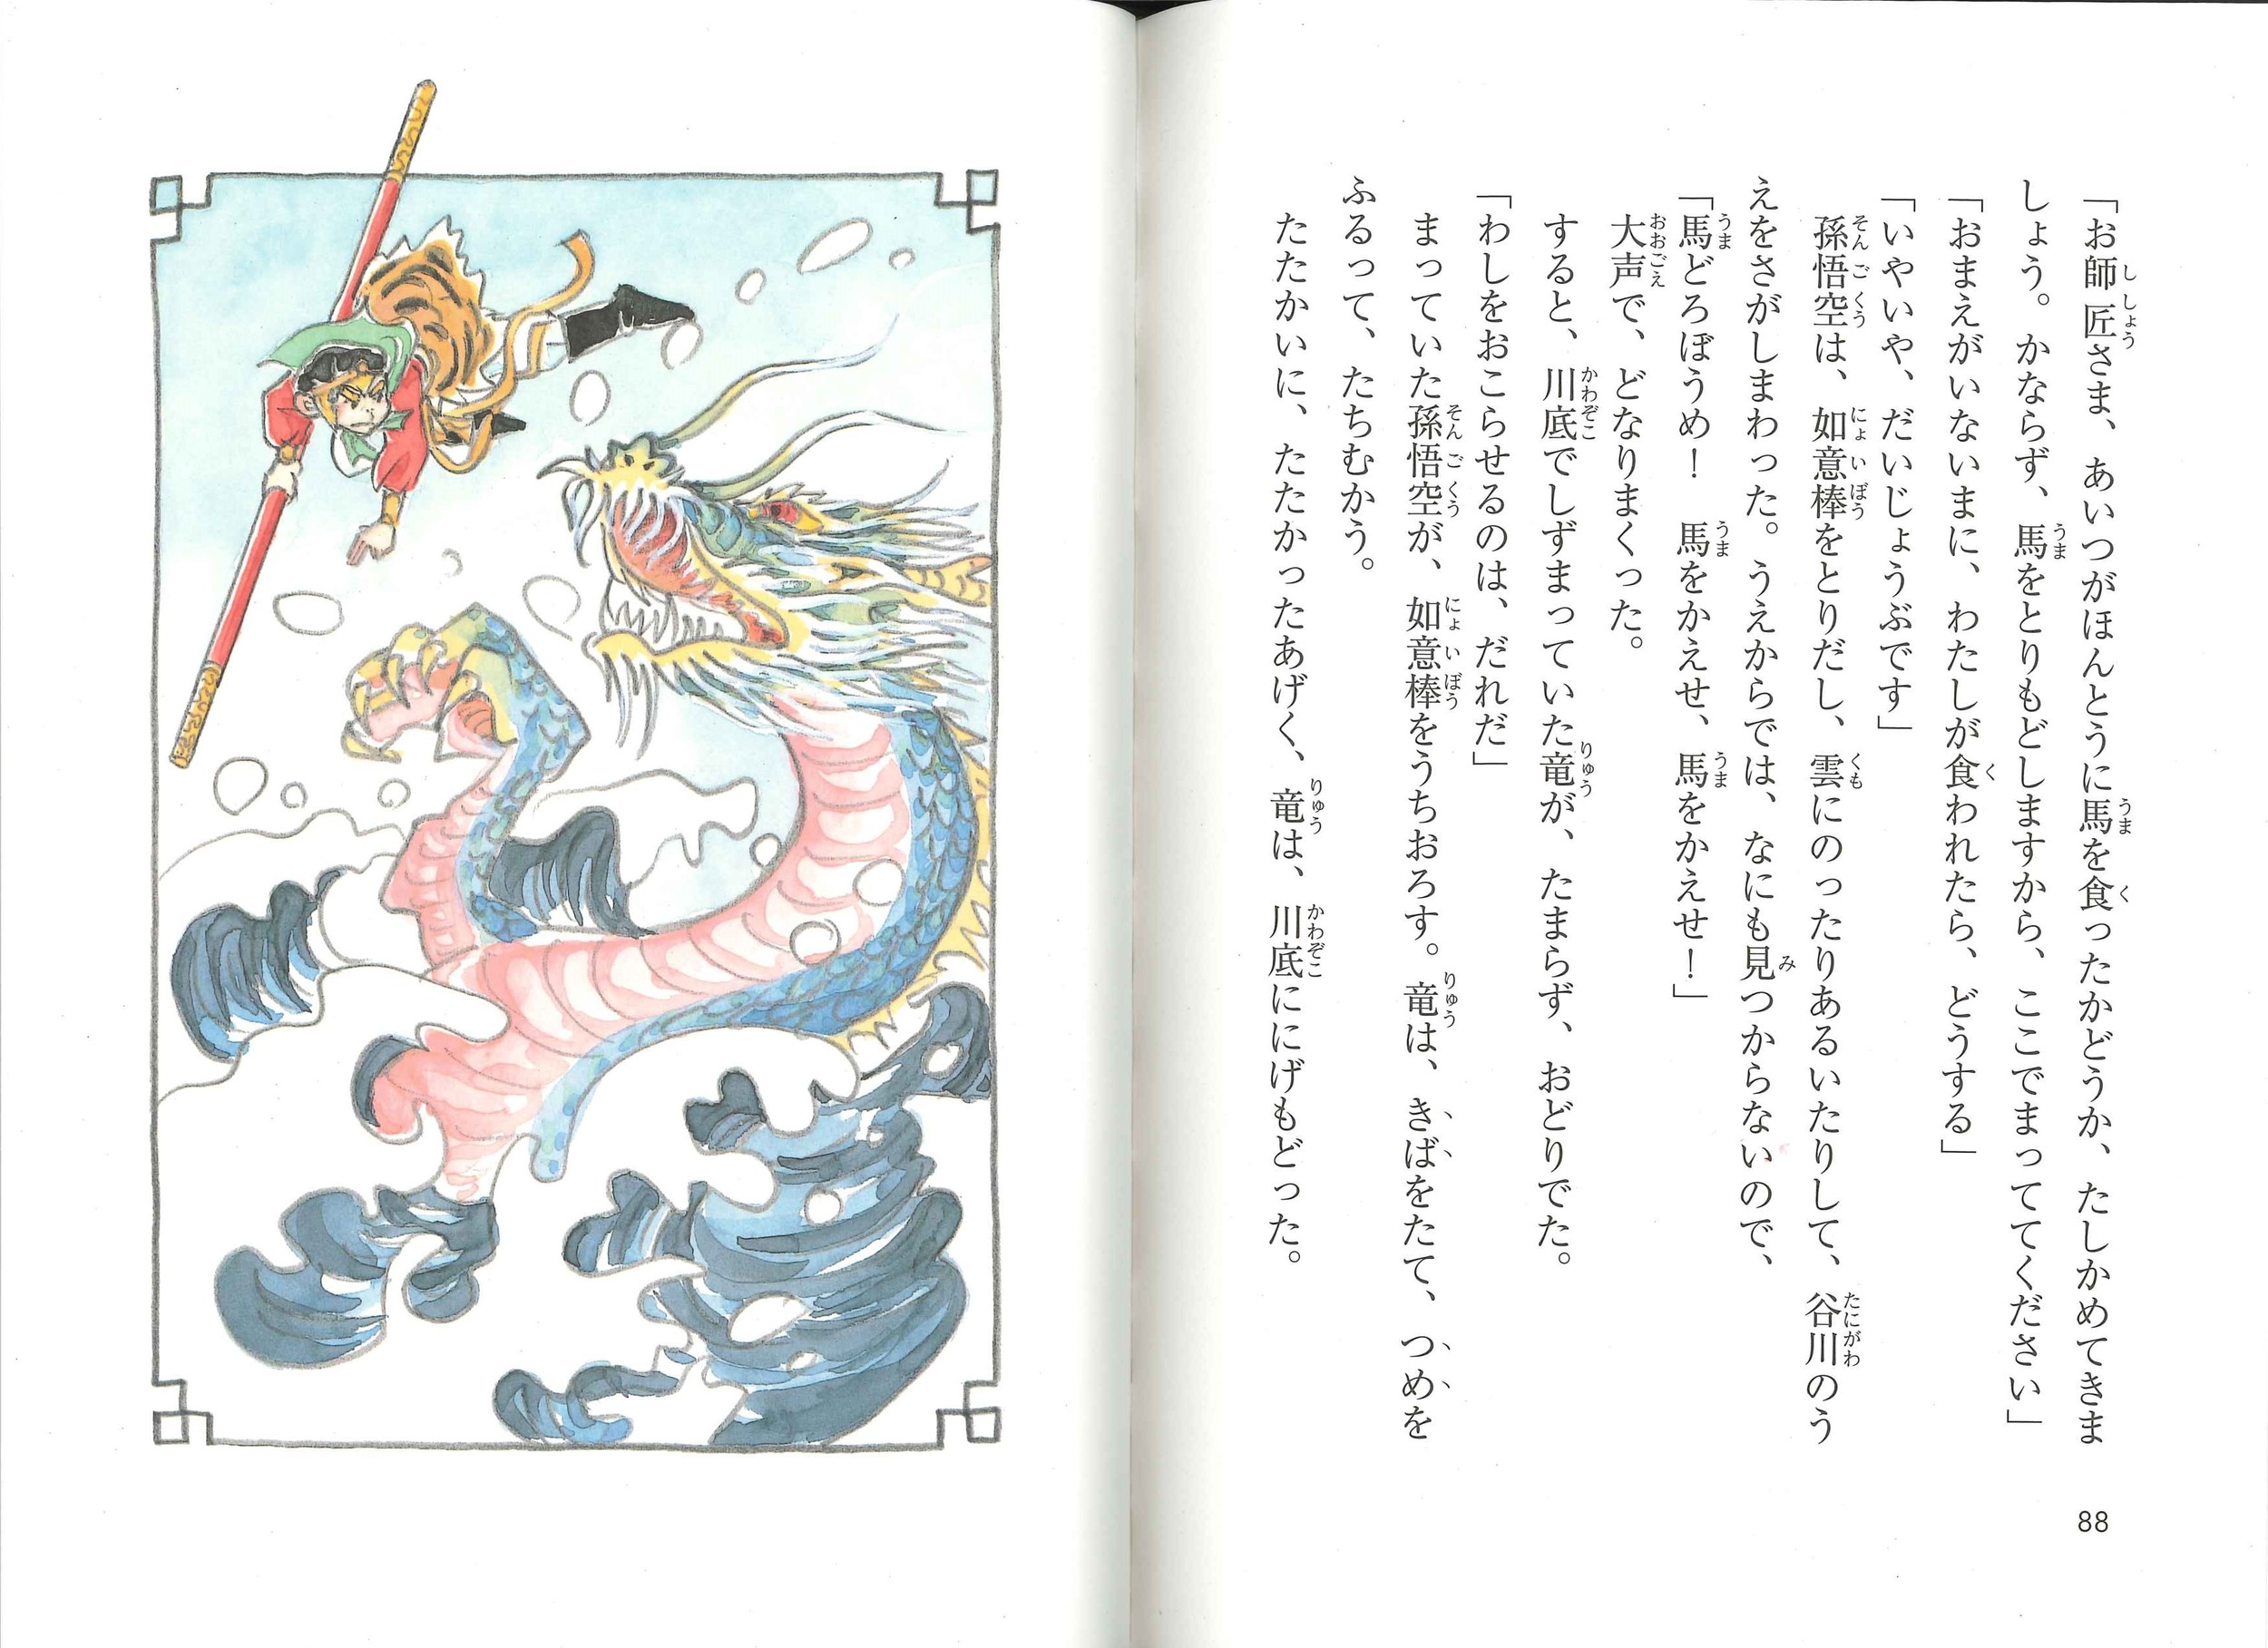 「お師匠さま、あいつがほんとうに馬を食ったかどうか、たしかめてきま
しょう。かならず、馬をとりもどしますから、ここでまっててください」
「おまえがいないまに、わたしが食われたら、どうする」
「いやいや、だいじょうぶです」
孫悟空は、如意棒をとりだし、雲にのったりあるいたりして、谷川のう
えをさがしまわった。うえからでは、なにも見つからないので、
「馬どろぼうめ！　馬をかえせ、馬をかえせ！」
大声で、どなりまくった。
すると、川底でしずまっていた竜が、たまらず、おどりでた。
「わしをおこらせるのは、だれだ」
まっていた孫悟空が、如意棒をうちおろす。竜は、きばをたて、つめを
ふるって、たちむかう。
たたかいに、たたかったあげく、竜は、川底ににげもどった。
88